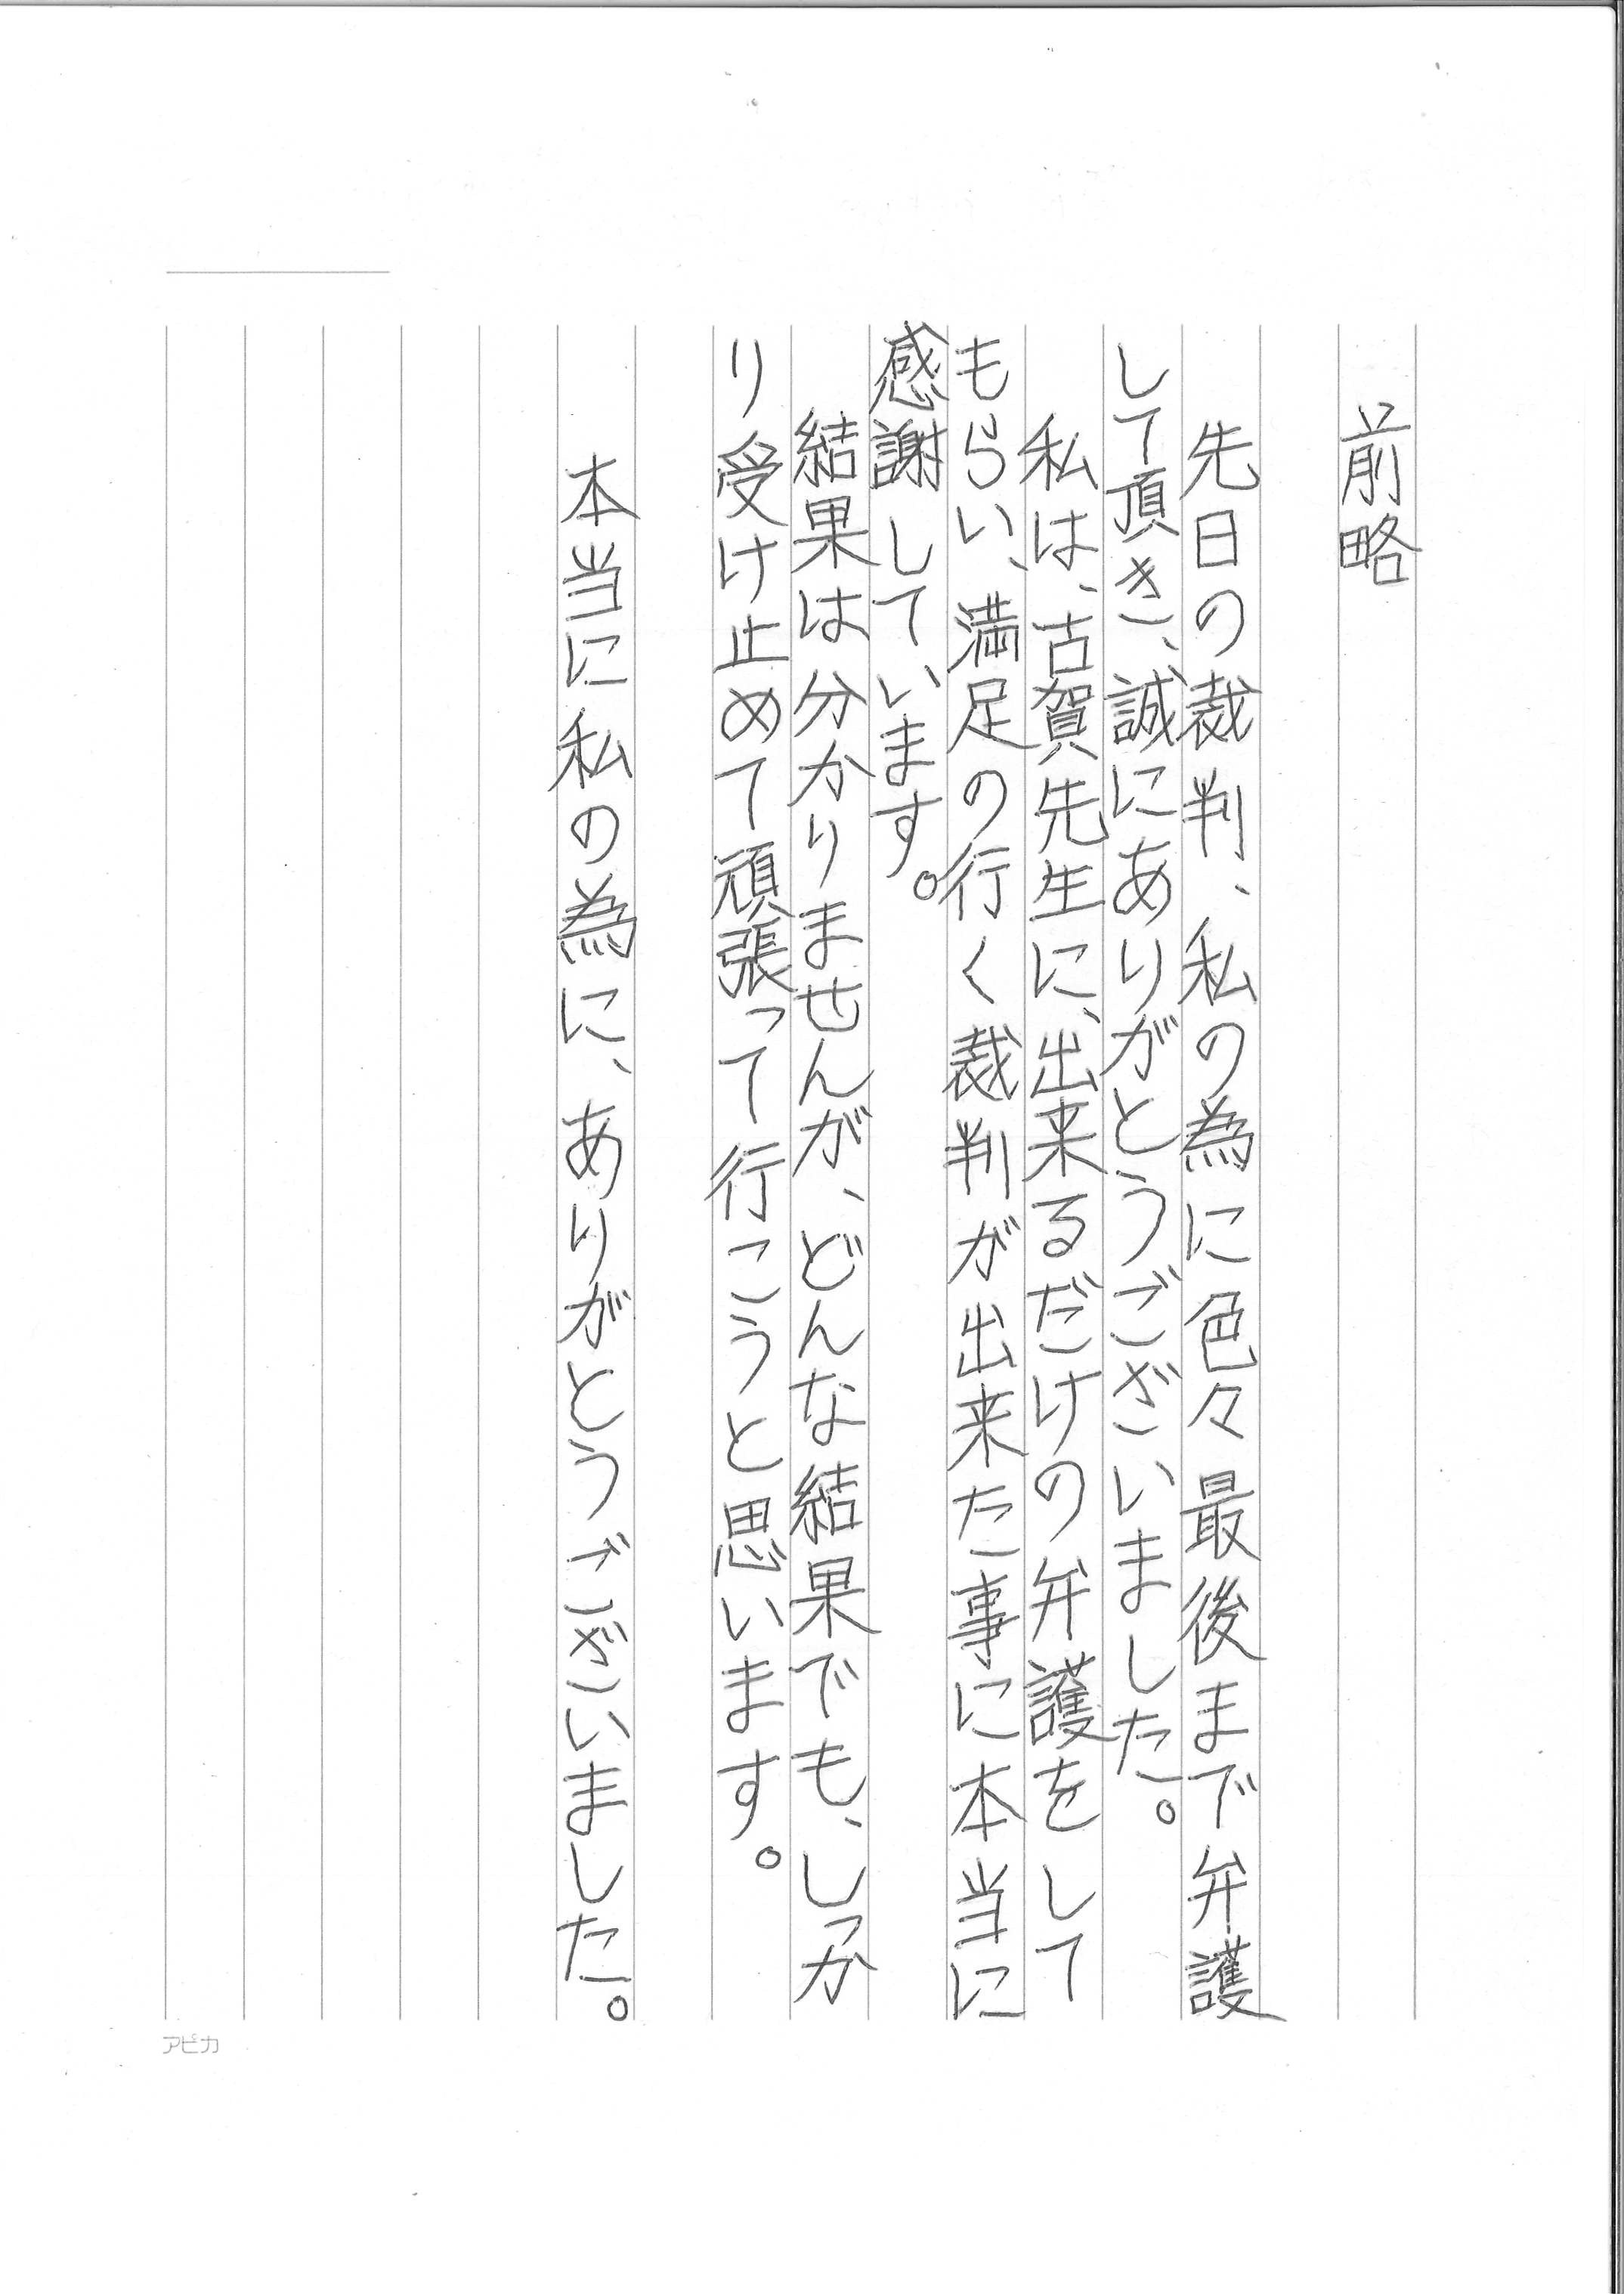 前略
先日の裁判、私の為に色々最後まで弁護
して頂き、誠にありがとうございました。
私は、古賀先生に、出来るだけの弁護をして
もらい、満足の行く裁判が出来た事に本当に
感謝しています。
結果は分かりませんが、どんな結果でも、しっか
り受け止めて頑張って行こうと思います。
本当に私の為に、ありがとうございました。
アピカ